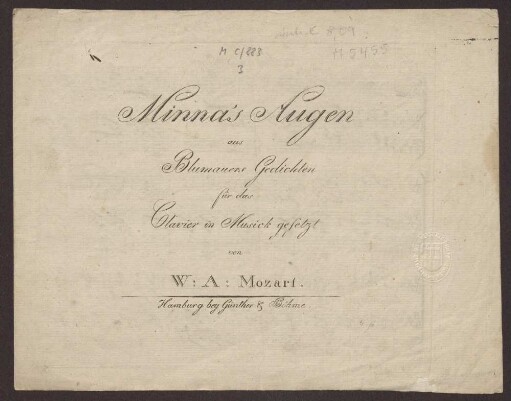 M C/223
3
M 5455
Minna's Augen
aus
Blumauers Gedichten
für das
Clavier in Musick gesetzt
von
W: A: Mozart.
Hamburg bey Günther & Böhme